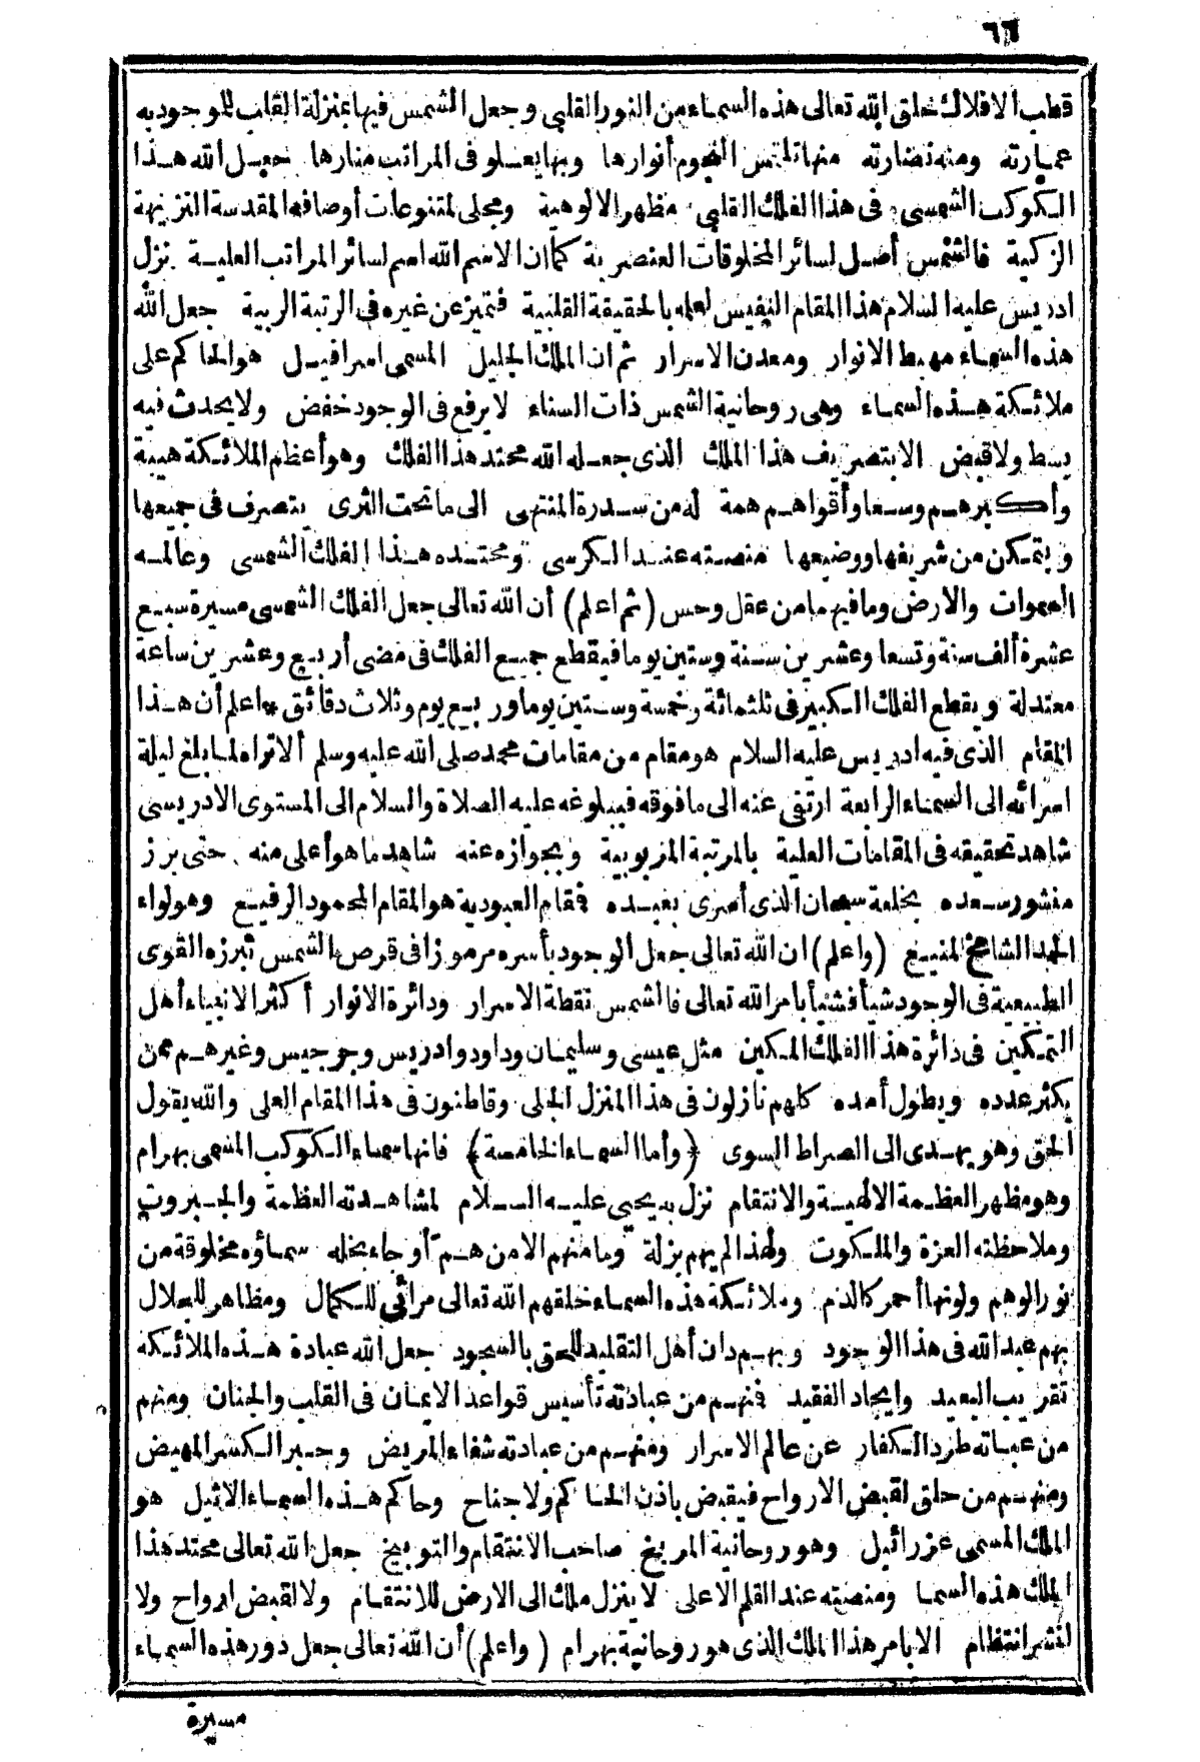 ٦٦
قطب الافلاك خلق الله تعالى هذه السماء من النور القلبى وجعل الشمس فيها بمنزلة القلب للوجود به
عمارته ومنه نضارته منها تلتمس النجوم أنوارها وبها يعلو فى المراتب منارها جعل الله هذا
الكوكب الشمسى فى هذا الفلك القلبى مظهر الالوهية ومجلى لمتنوعات أوصافه المقدسة النزيهة
الزكية فالشمس أصل لسائر المخلوقات العنصرية كما ان الاسم الله اسم لسائر المراتب العلية نزل
ادريس عليه السلام هذا المقام النفيس لعلمه بالحقيقة القلبية فتميز عن غيره فى الرتبة الربية جعل الله
هذه السماء مهبط الانوار ومعدن الاسرار ثم ان الملك الجليل المسمى اسرافيل هو الحاكم على
ملائكة هذه السماء وهى روحانية الشمس ذات السناء لا يرفع فى الوجود خفض ولا يحدث فيه
بسط ولا قبض الا بتصريف هذا الملك الذى جعله الله محتد هذا الفلك وهو أعظم الملائكة هيبة
وأكبرهم وسعا وأقواهم همة له من سدرة المنتهى الى ما تحت الثرى يتصرف فى جميعها
ويتمكن من شريفها ووضيعها منصته عند الكرسى ومحتده هذا الفلك الشمسى وعالمه
السموات والارض وما فيهما من عقل وحس (ثم اعلم) أن الله تعالى جعل الفلك الشمسى مسيرة سبع
عشرة ألف سنة وتسعا وعشرين سنة وستين يوما فيقطع جميع الفلك فى مضى أربع وعشرين ساعة
معتدلة ويقطع الفلك الكبير فى ثلثمائة وخمسة وستين يوما وربع يوم وثلاث دقائق * اعلم أن هذا
المقام الذى فيه ادريس عليه السلام هو مقام من مقامات محمد صلى الله عليه وسلم ألا تراه لما بلغ ليلة
اسرائه الى السماء الرابعة ارتقى عنه الى ما فوقه فببلوغه عليه الصلاة والسلام الى المستوى الادريسى
شاهد تحقيقه فى المقامات العلية بالمرتبة المربوبية وبجوازه عنه شاهد ما هو أعلى منه حتى برز
منشور سعده بخلعة سبحان الذى أسرى بعبده فمقام العبودية هو المقام المحمود الرفيع وهو لواء
الحمد الشامخ المنيع (واعلم) ان الله تعالى جعل الوجود بأسره مرموزا فى قرص الشمس تبرزه القوى
الطبيعية فى الوجود شيأ فشيأ بامر الله تعالى فالشمس نقطة الاسرار ودائرة الانوار أكثر الانبياء أهل
التمكين فى دائرة هذا الفلك المكين مثل عيسى وسليمان وداود وادريس وجرجيس وغيرهم ممن
يكثر عدده ويطول أمده كلهم نازلون فى هذا المنزل الجلى وقاطنون فى هذا المقام العلى والله يقول
الحق وهو يهدى الى الصراط السوى ﴿وأما السماء الخامسة﴾ فانها سماء الكوكب المسمى بهرام
وهو مظهر العظمة الالهية والانتقام نزل به يحيى عليه السلام لمشاهدته العظمة والجبروت
وملاحظته العزة والملكوت ولهذا لم يهم بزلة وما منهم الا من هم أو جاء بخله سماؤه مخلوقة من
نور الوهم ولونها أحمر كالدم وملائكة هذه السماء خلقهم الله تعالى مرائى للكمال ومظاهر للجلال
بهم عبد الله فى هذا الوجود وبهم دان أهل التقليد للحق بالسجود جعل الله عبادة هذه الملائكه
تقريب البعيد وايجاد الفقيد فنهم من عبادته تأسيس قواعد الايمان فى القلب والجنان ومنهم
من عباته طرد الكفار عن عالم الاسرار ومنهم من عبادته شفاء المريض وجبر الكسر المهيض
ومنهم من خلق لقبض الارواح فيقبض باذن الحاكم ولا جناح وحاكم هذه السماء الاثيل هو
الملك المسمى عزرائيل وهو روحانية المريخ صاحب الانتقام والتوبيخ جعل الله تعالى محتد هذا
الملك هذه السما ومنصته عند القلم الاعلى لا ينزل ملك الى الارض للانتقام ولا لقبض ارواح ولا
لنشر انتظام الا بامر هذا الملك الذى هو روحانية بهرام (واعلم) أن الله تعالى جعل دور هذه السماء
مسيرة